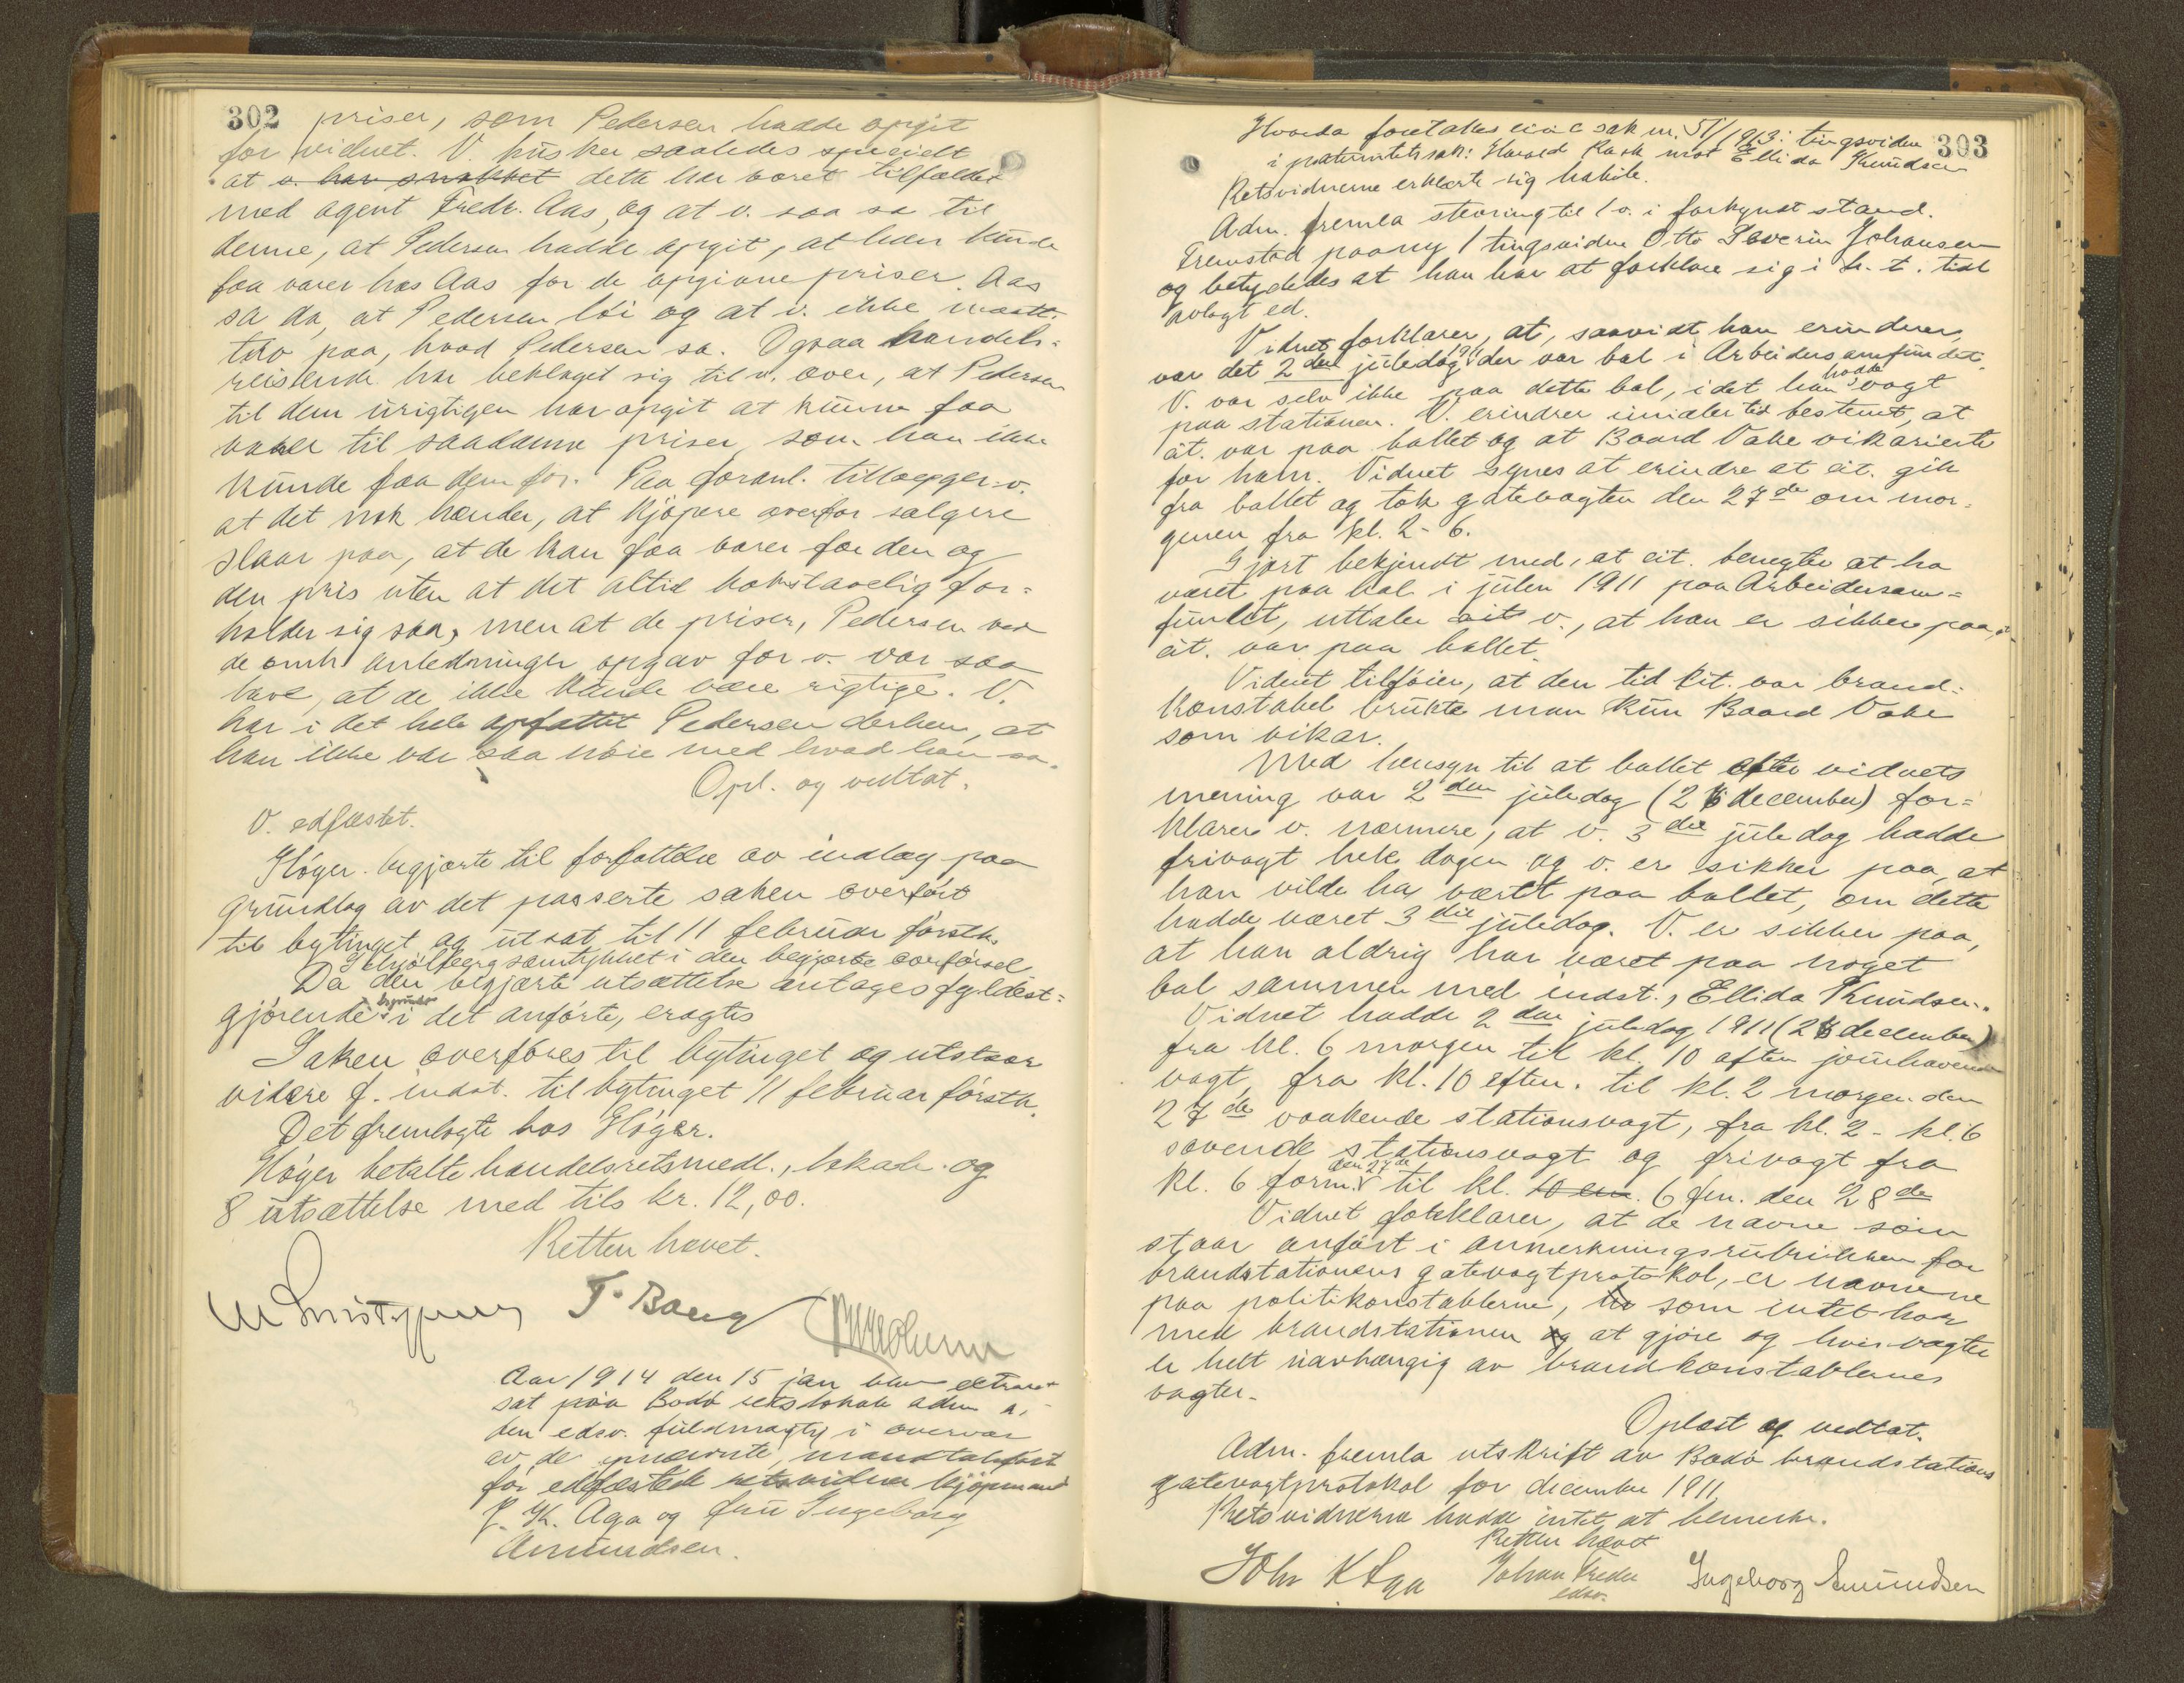 302 priser, som Pedersen hadde opgit
for vidnet. V. husker saaledes specielt
at v. har snakket dette har været tilfældet
med agent Fredr. Aas, og at v. saa sa til
denne, at Pedersen hadde opgit, at kunde
faa varer hos Aas for de opgivne priser. Aas
sa da, at Pedersen löi og at v. ikke maatte
tro paa, hvad Pedersen sa. Ogsaa handels-
reisende har beklaget sig til v. over, at Pedersen
til dem urigtigen har opgit at kunne faa
varer til saadanne priser, som han ikke
kunde faa dem for. Paa foranl. tillægger v.
at det nok hænder, at kjöpere overfor sælgere
slaar paa, at de kan faa varer for den og
den pris uten at det altid bokstavelig for-
holder sig saa, men at de priser, Pedersen ved
de omh. anledninger opgav for v. var saa
lave, at de ikke kunde være rigtige. V.
har i det hele opfattet Pedersen derhen, at
han ikke var saa nöie med hvad han sa.
Opl. og vedtat.
V. edfæstet.
Höyer begjærte til forfattelse av indlæg paa
grundlag av det passerte saken overfört
til bytinget og utsat til 11 februar förstk.
Schjölberg samtykket i den begjærte overförsel
Da den begjærte utsættelse antages fyldest-
gjörende begrundet i det anförte, eragtes
Saken overföres til bytinget og utstaar
videre f. indst. til bytinget 11 februar förstk.
Det fremlagte hos Höyer.
Höyer betalte handelsretsmedl., lokale og
8 utsættelse med tils kr. 12,00.
Retten hævet.
T. Bang
Aar 1914 den 15 jan blev extraret
sat paa Bodö retslokale adm a.
den edsv. fuldmægtig i overvær
av de opnævnte, mandtalfört
för edfæstede retsvidner kjöpmand
J. K. Aga og fru Ingeborg
Amundsen.
303
Hvorda foretokes civil sak nr. 51/1913: tingsvidne
i paternitetsak: Harald Rask mot Ellida Knudsen
Retsvidnerne erklærte sig habile.
Adm. fremla stevning til 1 v. i forkyndt stand.
Fremstod paany 1 tingsvidne Otto Severin Johansen
og betydedes at han har at forklare sig i h. t. tidl
avlagt ed.
Vidnet forklarer, at, saavidt han erindrer,
var det 2den juledag 1911 der var bal i Arbeidersamfundet.
V. var selv ikke paa dette bal, idet han hadde vagt
paa stationen. V. erindrer imidlertid bestemt, at
cit. var paa ballet og at Baard Vake vikarierte
for ham. Vidnet synes at erindre at cit. gik
fra ballet og tok gatevagten den 27de om mor-
genen fra kl. 2-6.
Gjort bekjendt med, at cit. benegter at ha
været paa bal i julen 1911 paa Arbeidersam-
fundet, uttaler cit v., at han er sikker paa at
cit. var paa ballet.
Vidnet tilföier, at den tid cit. var brand-
konstabel brukte man kun Baard Vake
som vikar.
Med hensyn til at ballet efter vidnets
mening var 2den juledag (26 december) for-
klarer v. nærmere, at v. 3die juledag hadde
frivagt hele dagen og v. er sikker paa, at
han vilde ha været paa ballet, om dette
hadde været 3die juledag. V. er sikker paa,
at han aldrig har været paa noget
bal sammen med indst., Ellida Knudsen.
Vidnet hadde 2den juledag 1911 (26 december)
fra kl. 6 morgen til kl. 10 aften jourhavende
vagt, fra kl. 10 eftm. til kl. 2 morgen den
27de vaakende stationsvagt, fra kl. 2 - kl. 6
sovende stationsvagt og frivagt fra
kl. 6 form. den 27de til kl. 10 em. 6 fm. den 28de
Vidnet forklarer, at de navne som
staar anfört i anmerkningsrubrikken for
brandstationens gatevagtprotokol, er navnene
paa politikonstablerne, som intet har
med brandstationen og at gjöre og hvis vagter
er helt uavhængig av brandkonstablernes
vagter.
Oplæst og vedtat.
Adm. fremla utskrift av Bodö brandstations
gatevagtprotokol for december 1911.
Retsvidnerne hadde intet at bemerke.
Retten hævet
John K Aga Johan Freder Ingeborg Amundsen
edsv.